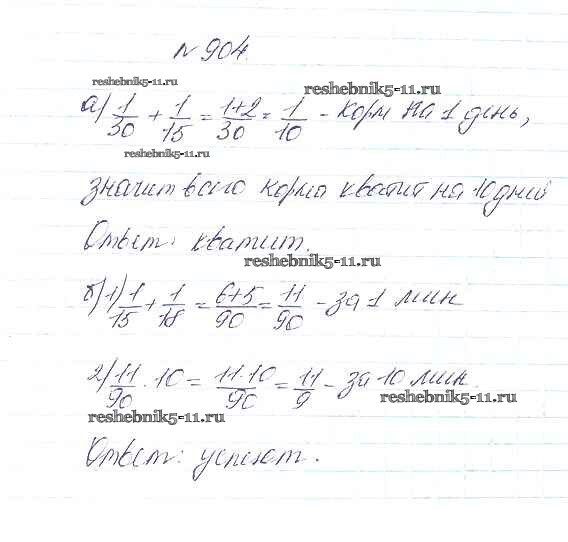 № 904.
reshebnik5-11.ru
reshebnik5-11.ru
а) 1/30 + 1/15 = 1+2/30 = 1/10 - корм на 1 день,
reshebnik5-11.ru
значит всего корма хватит на 10 дней
Ответ: хватит.
reshebnik5-11.ru
б) 1) 1/15 + 1/18 = 6+5/90 = 11/90 - за 1 мин
2) 11/90 · 10 = 11·10/90 = 11/9 - за 10 мин.
reshebnik5-11.ru
reshebnik5-11.ru
Ответ: успеют.